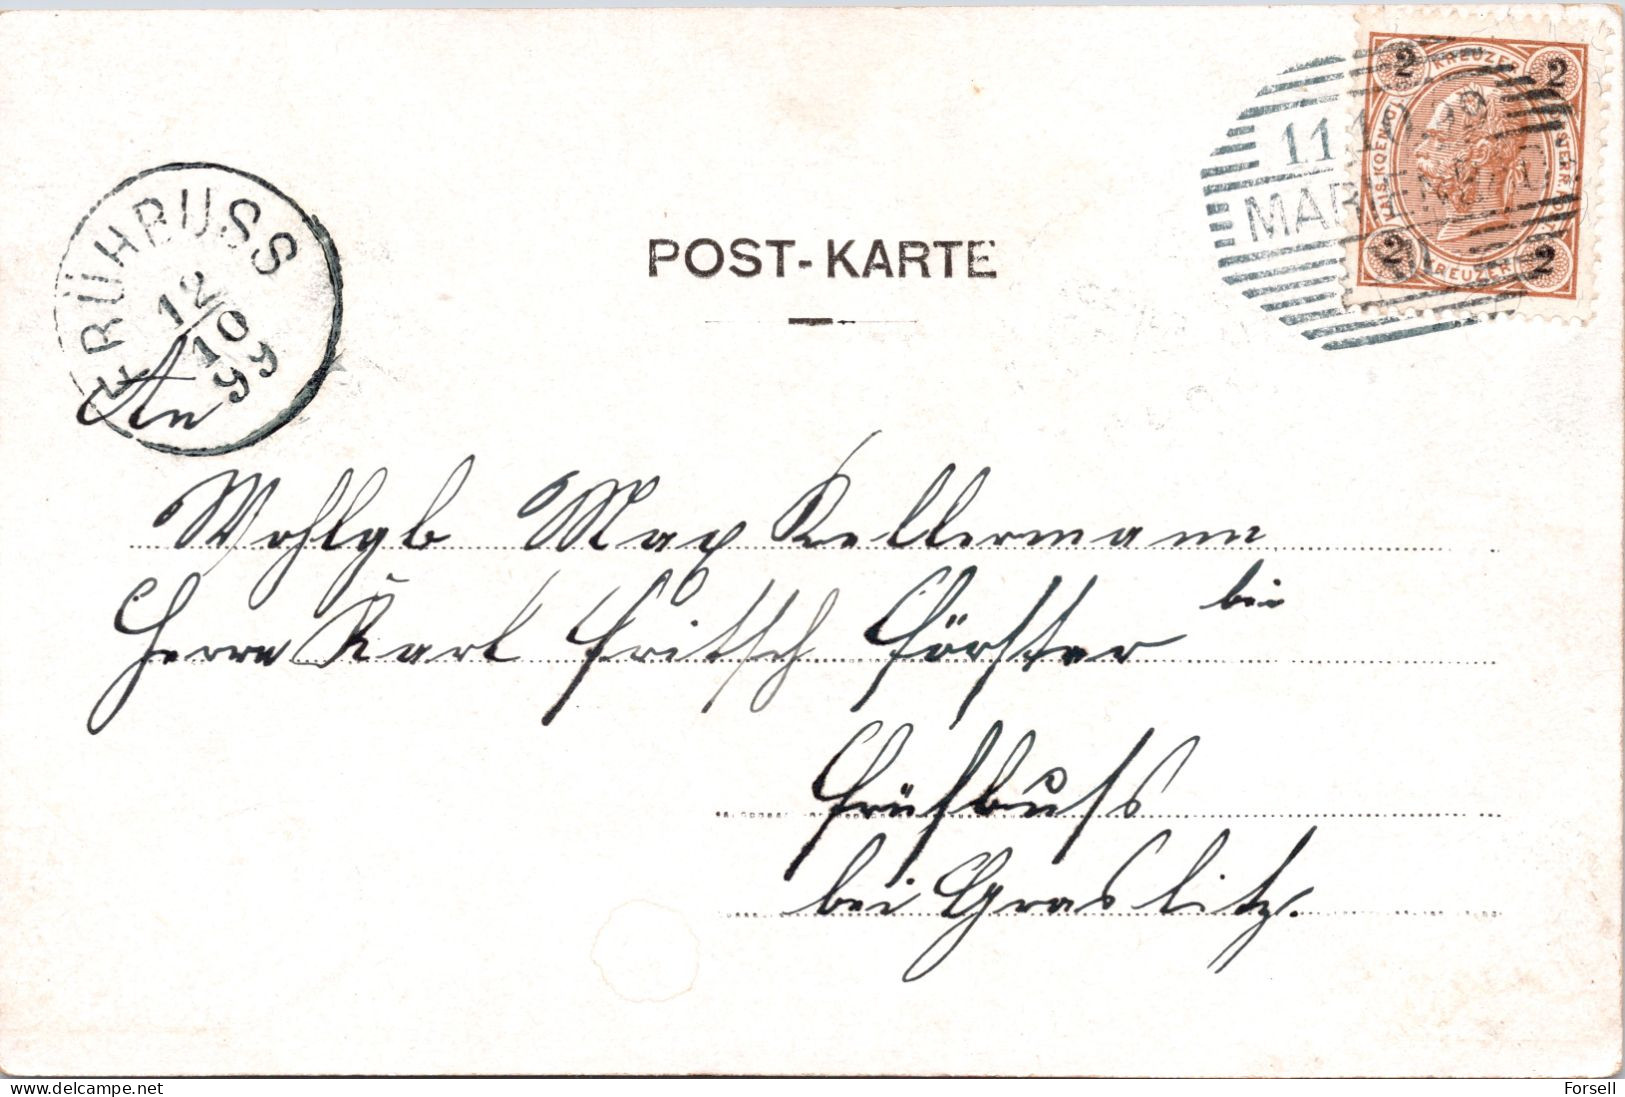 2 KREUZER 2
KAIS. KOENIGL. OESTERR. POST
11.10.99
MARIENBAD
2 KREUZER 2
POST-KARTE
FRÜHBUSS
12/10
99
An
Wohlgb Max Kellermann
bei
Herrn Karl Fritsch Förster
Frühbuss
bei Graslitz.
Forsell
www.delcampe.net